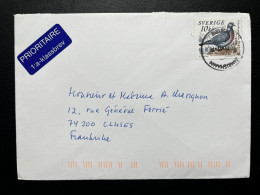 PRIORITAIRE
1:a-klassbrev
SVERIGE
10
Monsieur et Madame A
12, rue Général Ferrié
74300 CLUSES
Frankrike